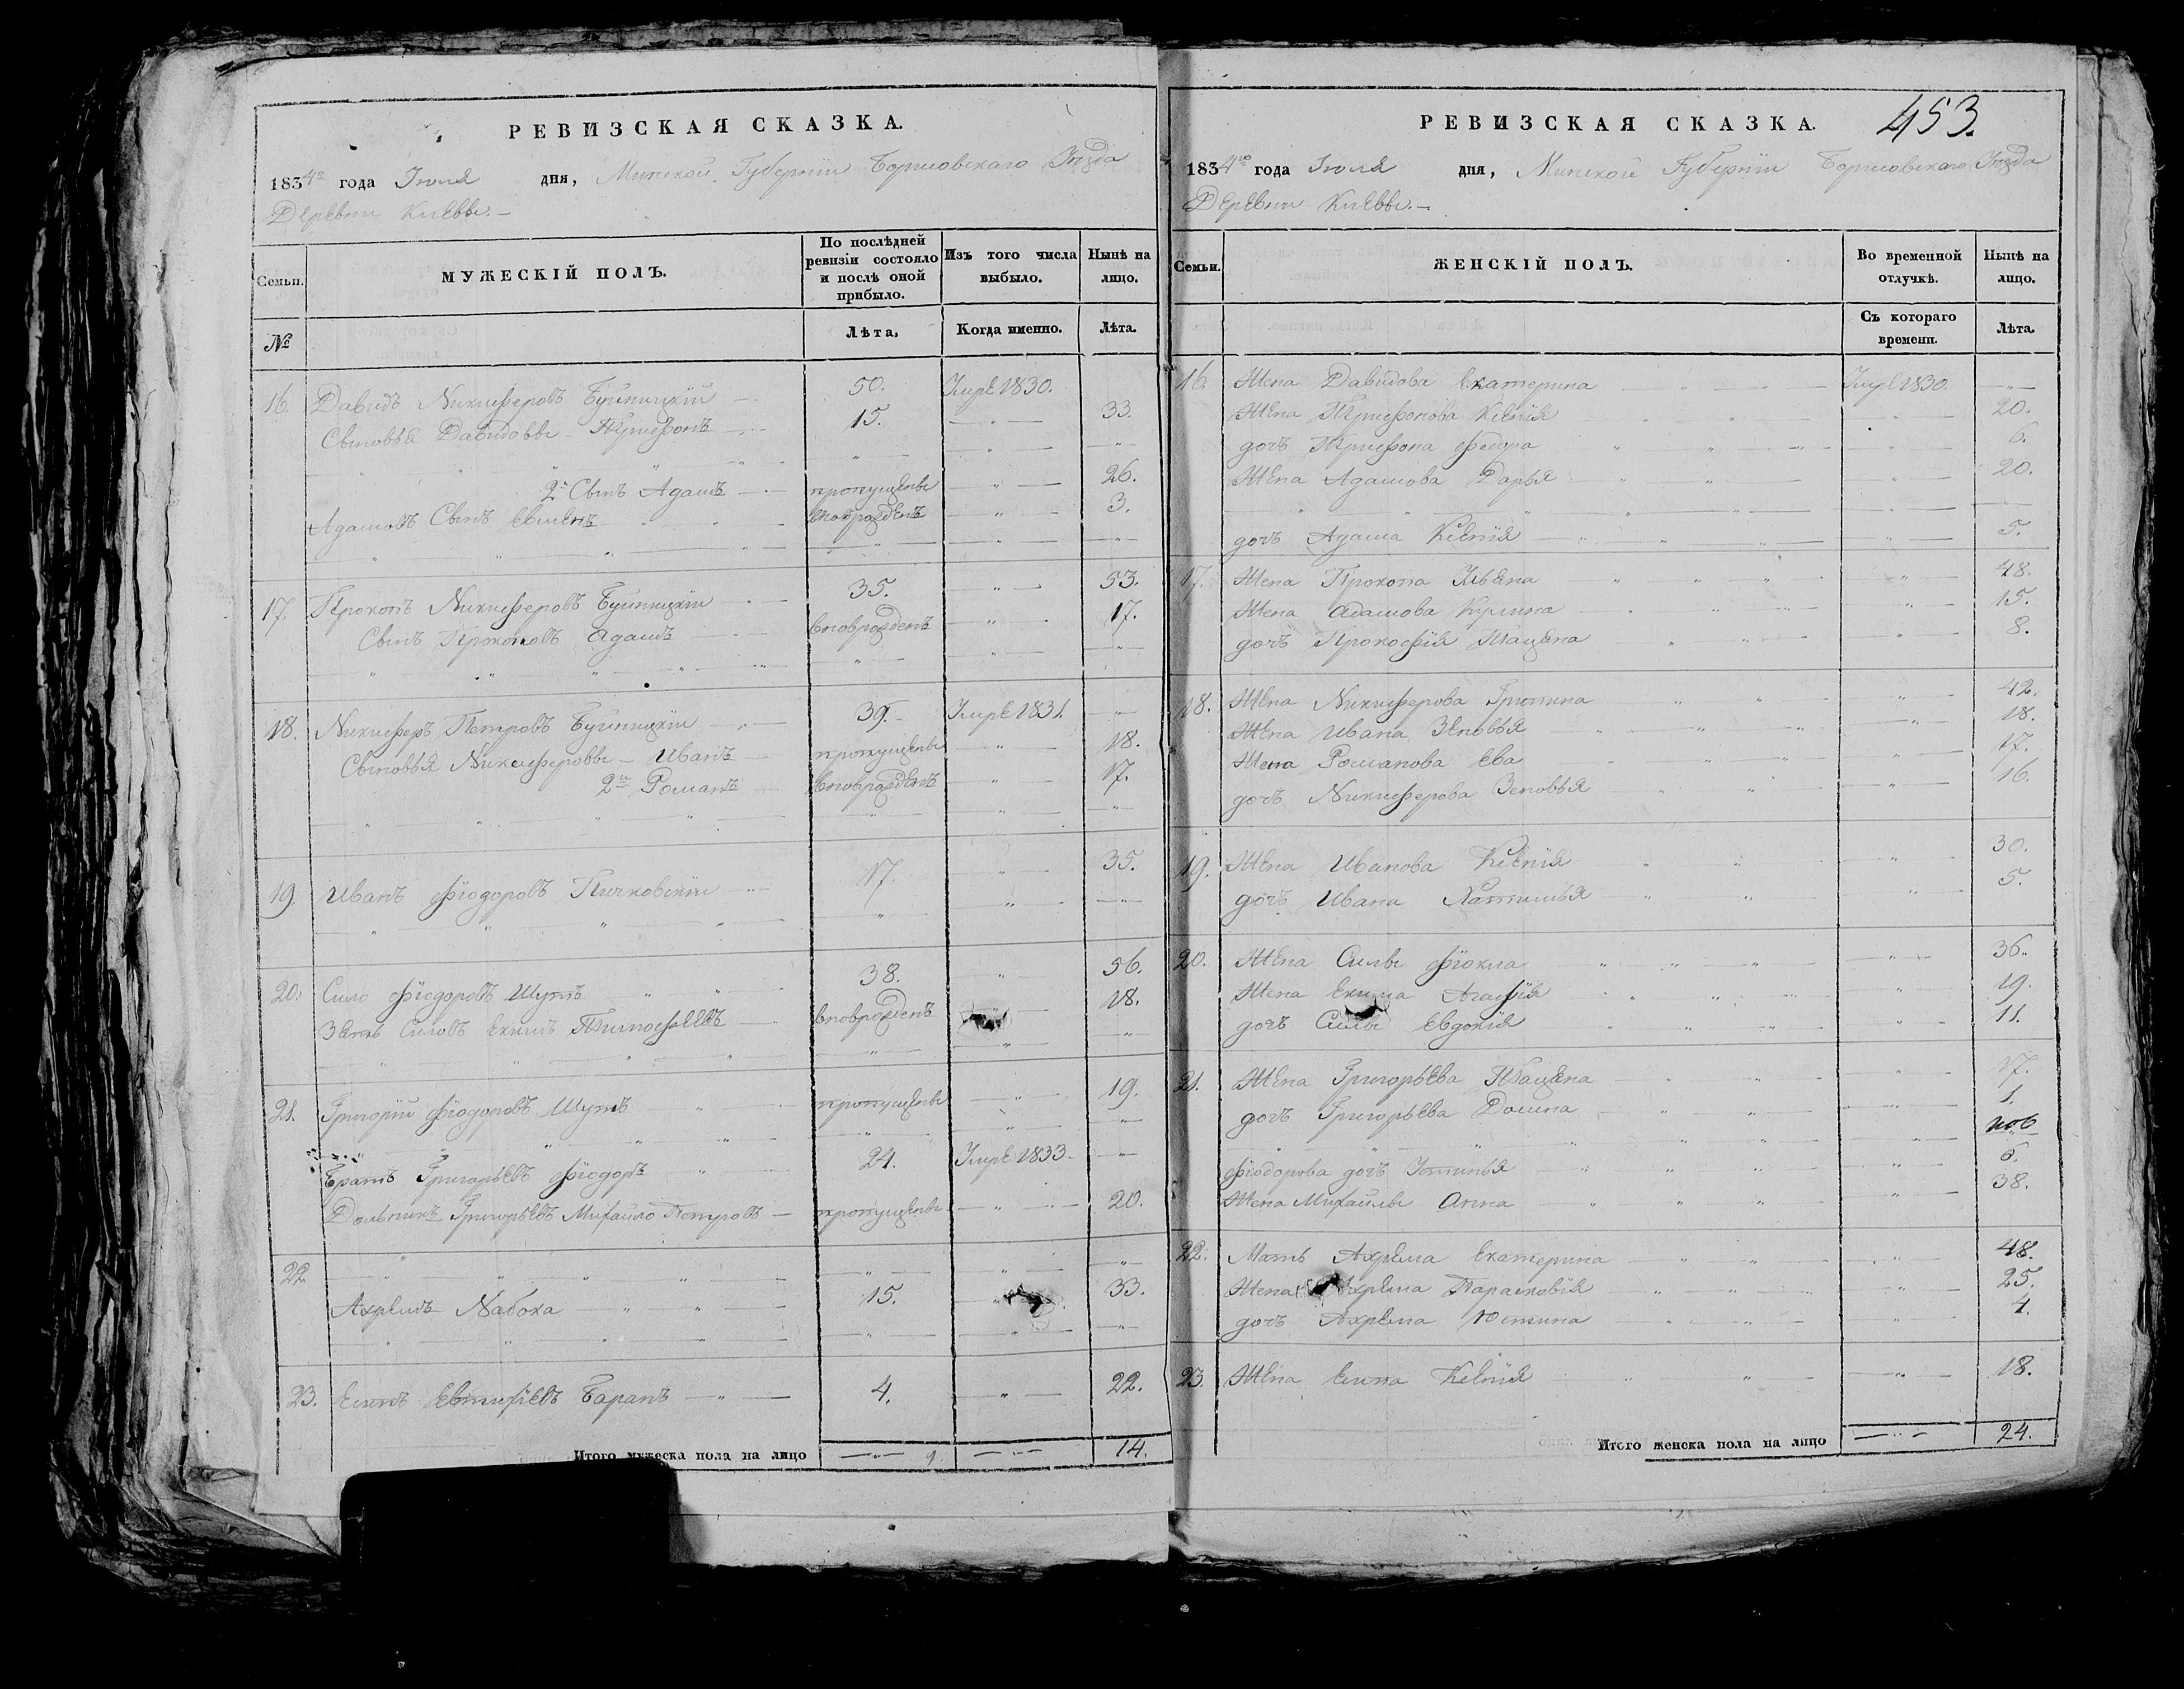 РЕВИЗСКАЯ СКАЗКА.
1834го года Июля дня, Минской Губернии Борисовскаго Уезда
Деревни Киевы.
Семьи. МУЖЕСКІЙ ПОЛЪ. По послѣдней ревизіи состояло и послѣ оной прибыло. Изъ того числа выбыло. Нынѣ на лицо.
№ Лѣта. Когда именно. Лѣта.
16. Давидъ Никиферовъ 50. Умре 1830.
Сыновья Давыдовы Трифонъ 15. 33.
2й Сынъ Адамъ пропущены 26.
Адамовъ Сынъ вноврозденъ 3.
17. Прокопъ Никиферовъ 35. 53.
Сынъ Прокоповъ Адамъ вноврозденъ 17.
18. Никиферъ Петровъ 39. Умре 1831.
Сыновья Никиферовы Иванъ пропущены 18.
2й Романъ вноврозденъ 17.
19. Иванъ Фіодоровъ 17. 35.
20. Сило Фіодоровъ Шутъ 38. 56.
Зять Силовъ Екимъ Тимофѣевъ вноврозденъ 18.
21. Григорій Фіодоровъ Шутъ пропущены 19.
Братъ Григорьевъ Фіодоръ 24. Умре 1833.
Дольникъ Григорьевъ Михайло Петровъ пропущены 20.
22 Ахремъ Набока 15. 33.
23. Баранъ 4. 22.
Итого мужеска пола на лицо 14.
РЕВИЗСКАЯ СКАЗКА. 453.
1834го года Июля дня, Минской Губерніи Борисовскаго Уезда
Деревни Киевы.
Семьи. ЖЕНСКІЙ ПОЛЪ. Во временной отлучкѣ. Нынѣ на лицо.
Съ котораго времени. Лѣта.
16. Жена Давидова Екатерина Умре 1830.
Жена Трифонова Ксенія 20.
дочъ Трифона Федора 6.
Жена Адамова Дарья 20.
дочъ Адама Ксенія 5.
17. Жена Прокопа Ульяна 48.
Жена Адамова Крыстина 15.
дочъ Прокофія Тацяна 8.
18. Жена Никиферова 42.
Жена Ивана Зеновья 18.
Жена Романова Ева 17.
дочъ Никиферова Зеновья 16.
19. Жена Иванова Ксенія 30.
дочъ Ивана 5.
20. Жена Силы Фіокла 36.
Жена Екима Агафія 19.
дочъ Силы Евдокія 11.
21. Жена Григорьева Тацяна 17.
дочъ Григорьева Домна 1.
Фіодорова дочъ Устинья 6.
Жена Михайлы Анна 38.
22. Мать Ахрема Екатерина 48.
Жена Ахрема Парасковія 25.
дочъ Ахрема Юстина 4.
23. Жена Ксенія 18.
Итого женска пола на лицо 24.